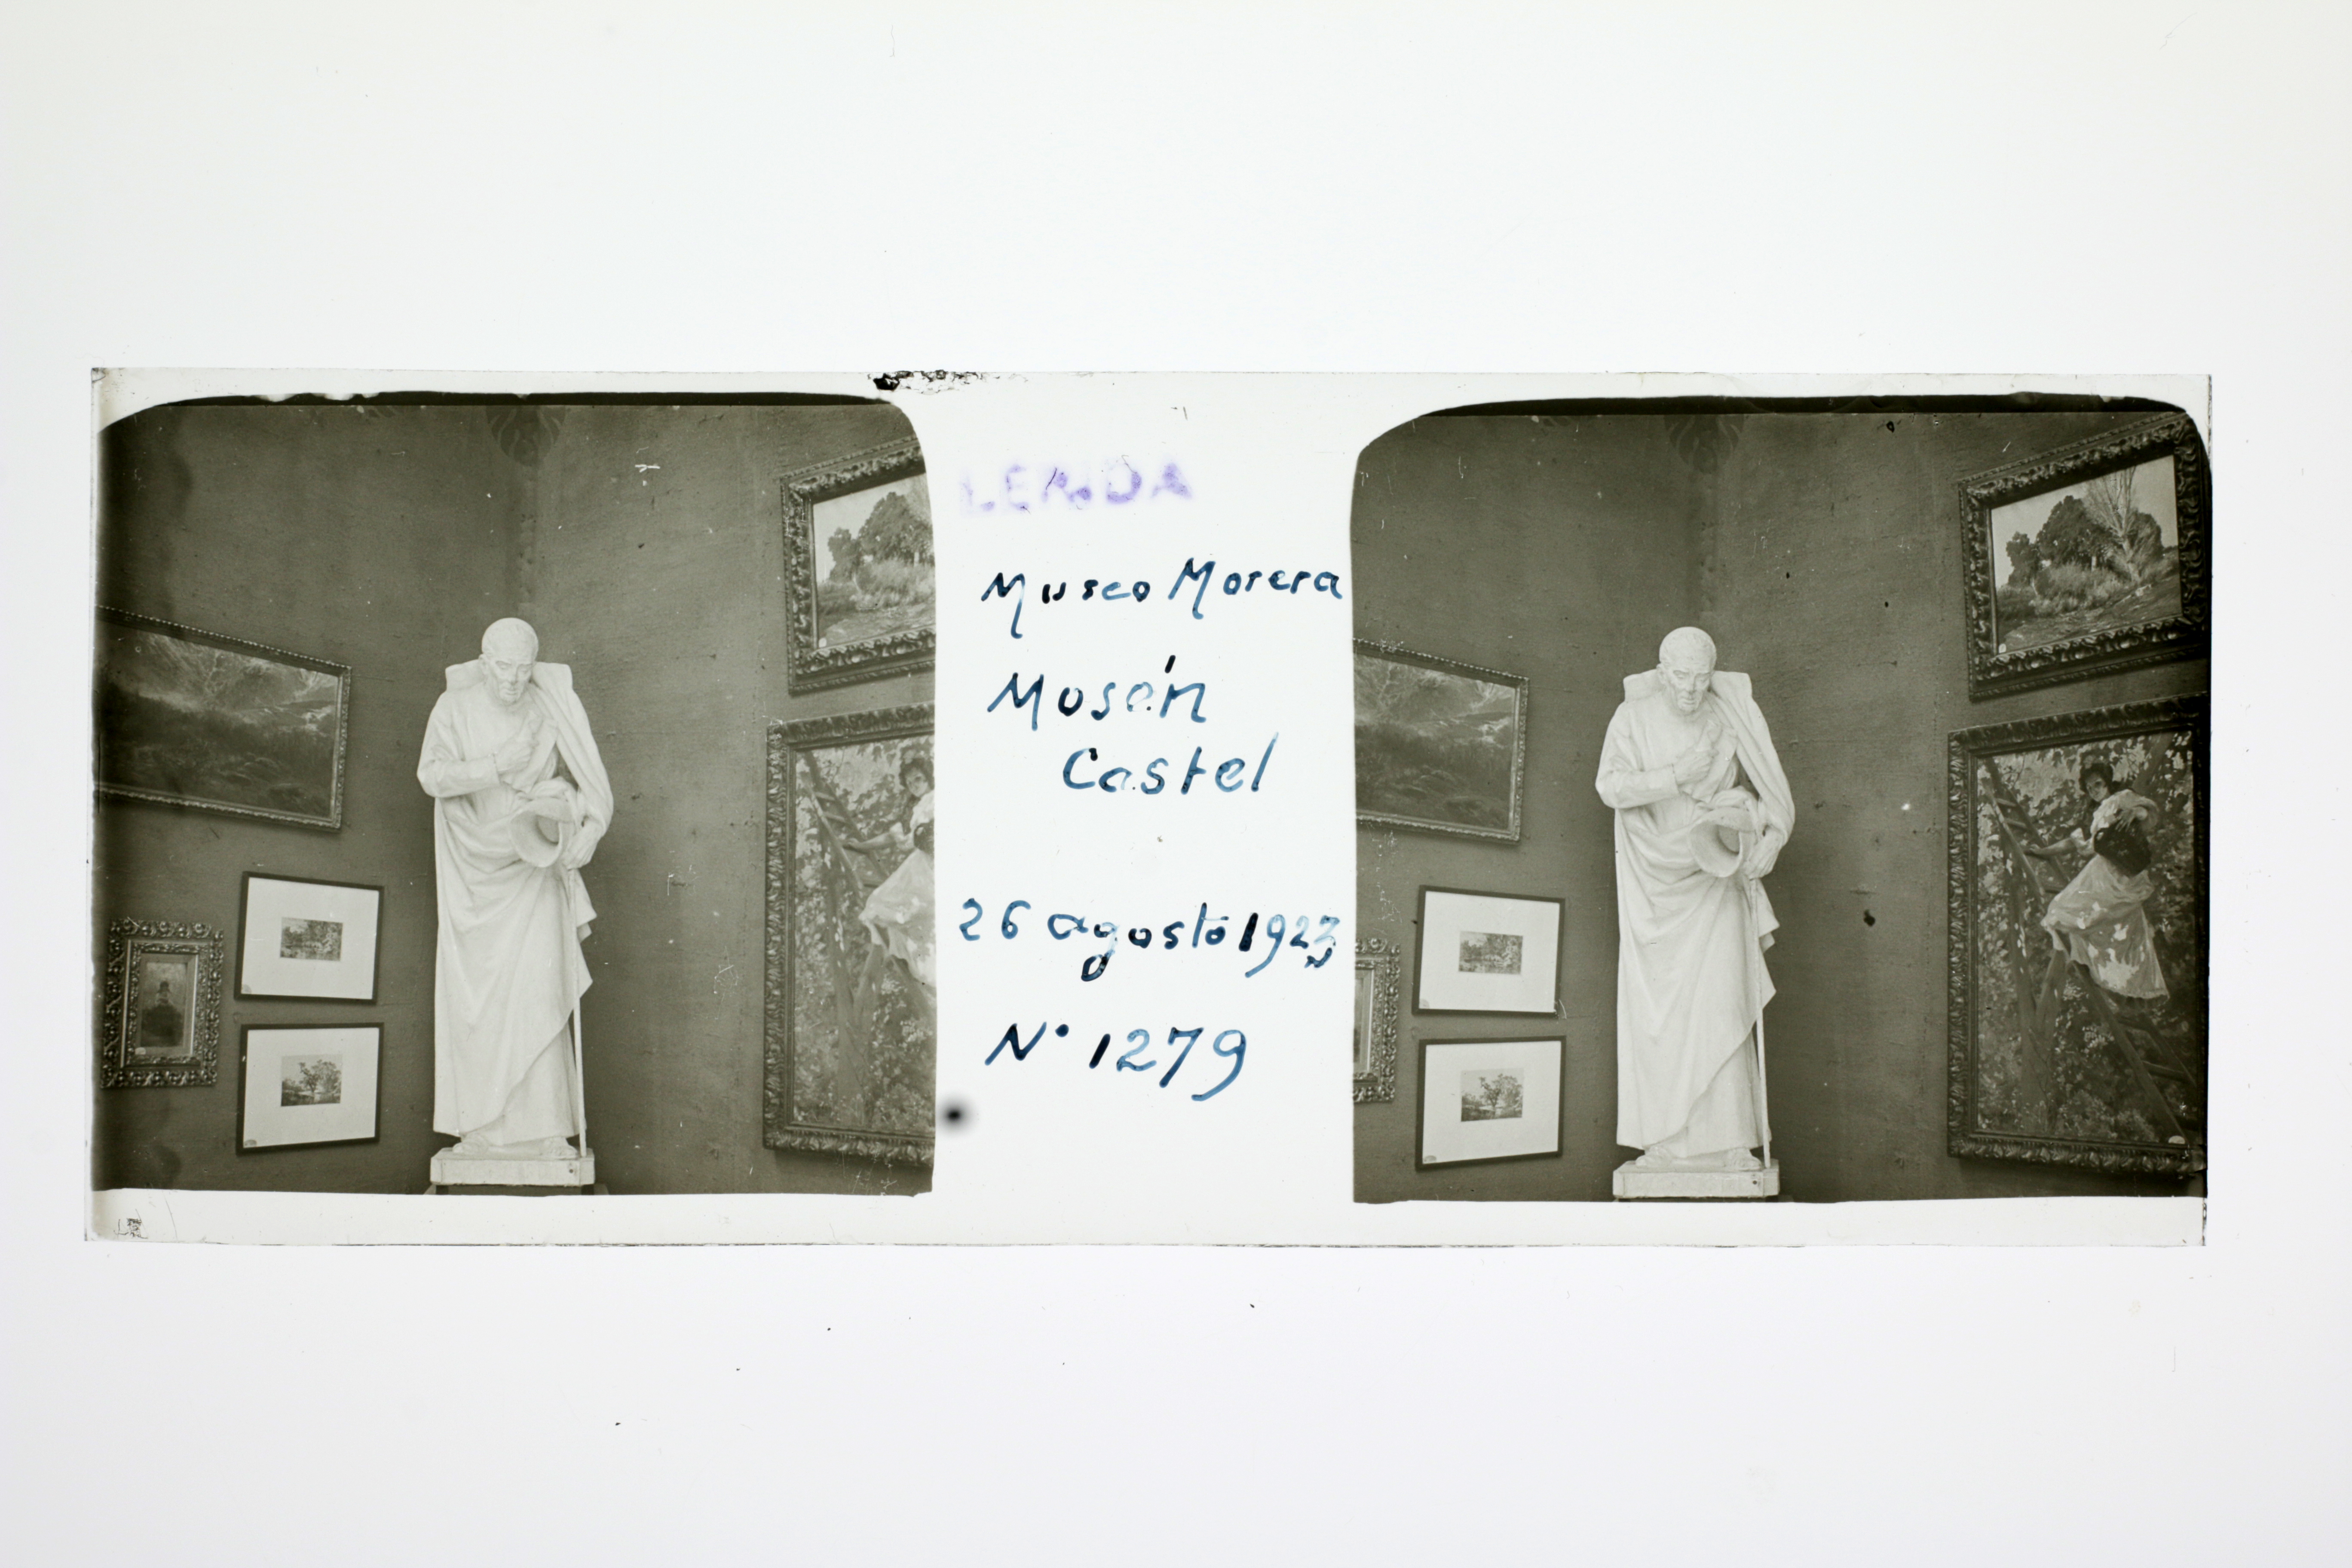 LERIDA
Museo Morera
Mosén
Castel
26 agosto 1923
Nº 1279